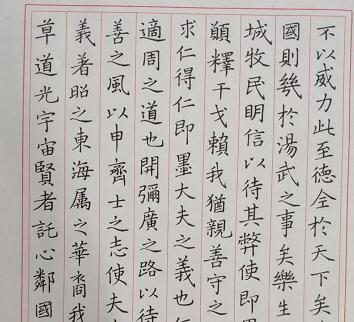 不以威力此至德全於天下矣
國則幾於湯武之事矣樂生
城牧民明信以待其弊使即
顒釋干戈賴我猶親善守之
求仁得仁即墨大夫之義也
適周之道也開彌廣之路以待
善之風以申齊士之志使夫
義著昭之東海属之華裔我
草道光宇宙賢者託心鄰國